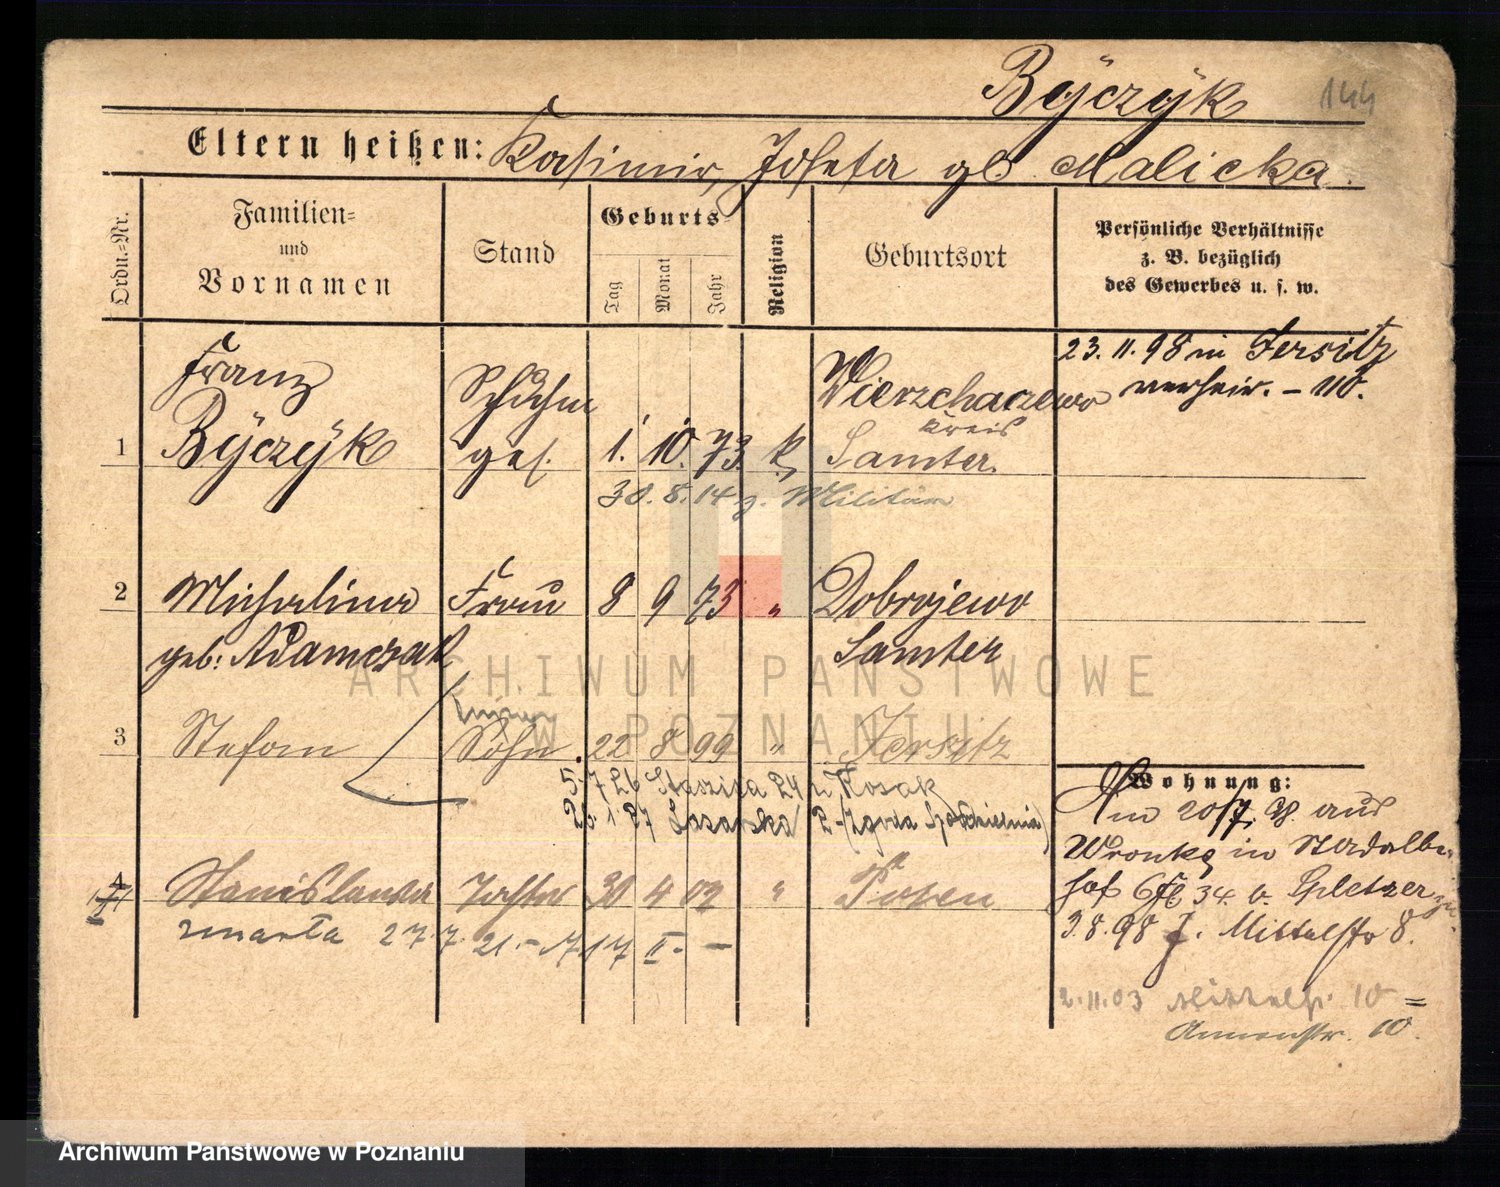 Byczyk 144
Eltern heißen: Kasimir, Josefa gb. Malicka.
Ordn.-Nr.
Familien- und Vornamen
Stand
Geburts-
Tag Monat Jahr
Religion
Geburtsort
Persönliche Verhältnisse
z. B. bezüglich
des Gewerbes u. s. w.
23. 11. 98 in Jersitz
verheir. - 110.
Franz Schuhm Wierzchaczewo
Kreis
1 Byczyk ges. 1. 10. 73. k. Samter.
30. 8. 14 z. Militär
2 Michalina Frau 8 9 73 " Dobrojewo
geb: Adamczak Samter
ARCHIWUM PAŃSTWOWE
W POZNANIU
3 Stefan Sohn 22 8 99 " Jersitz
5.7.26 Staszica 24 Kosak
26.1.27
Wohnung:
Am 20/7. 98 aus
Wronke in
34 b.
3.8.98 J. Mittelstr 8.
4 Stanislawa Tochter 30 4 02 " Posen
zmarła 27.7.21.- 717 II. -
2.11.03 Mittelstr. 10
Annenstr. 10.
Archiwum Państwowe w Poznaniu